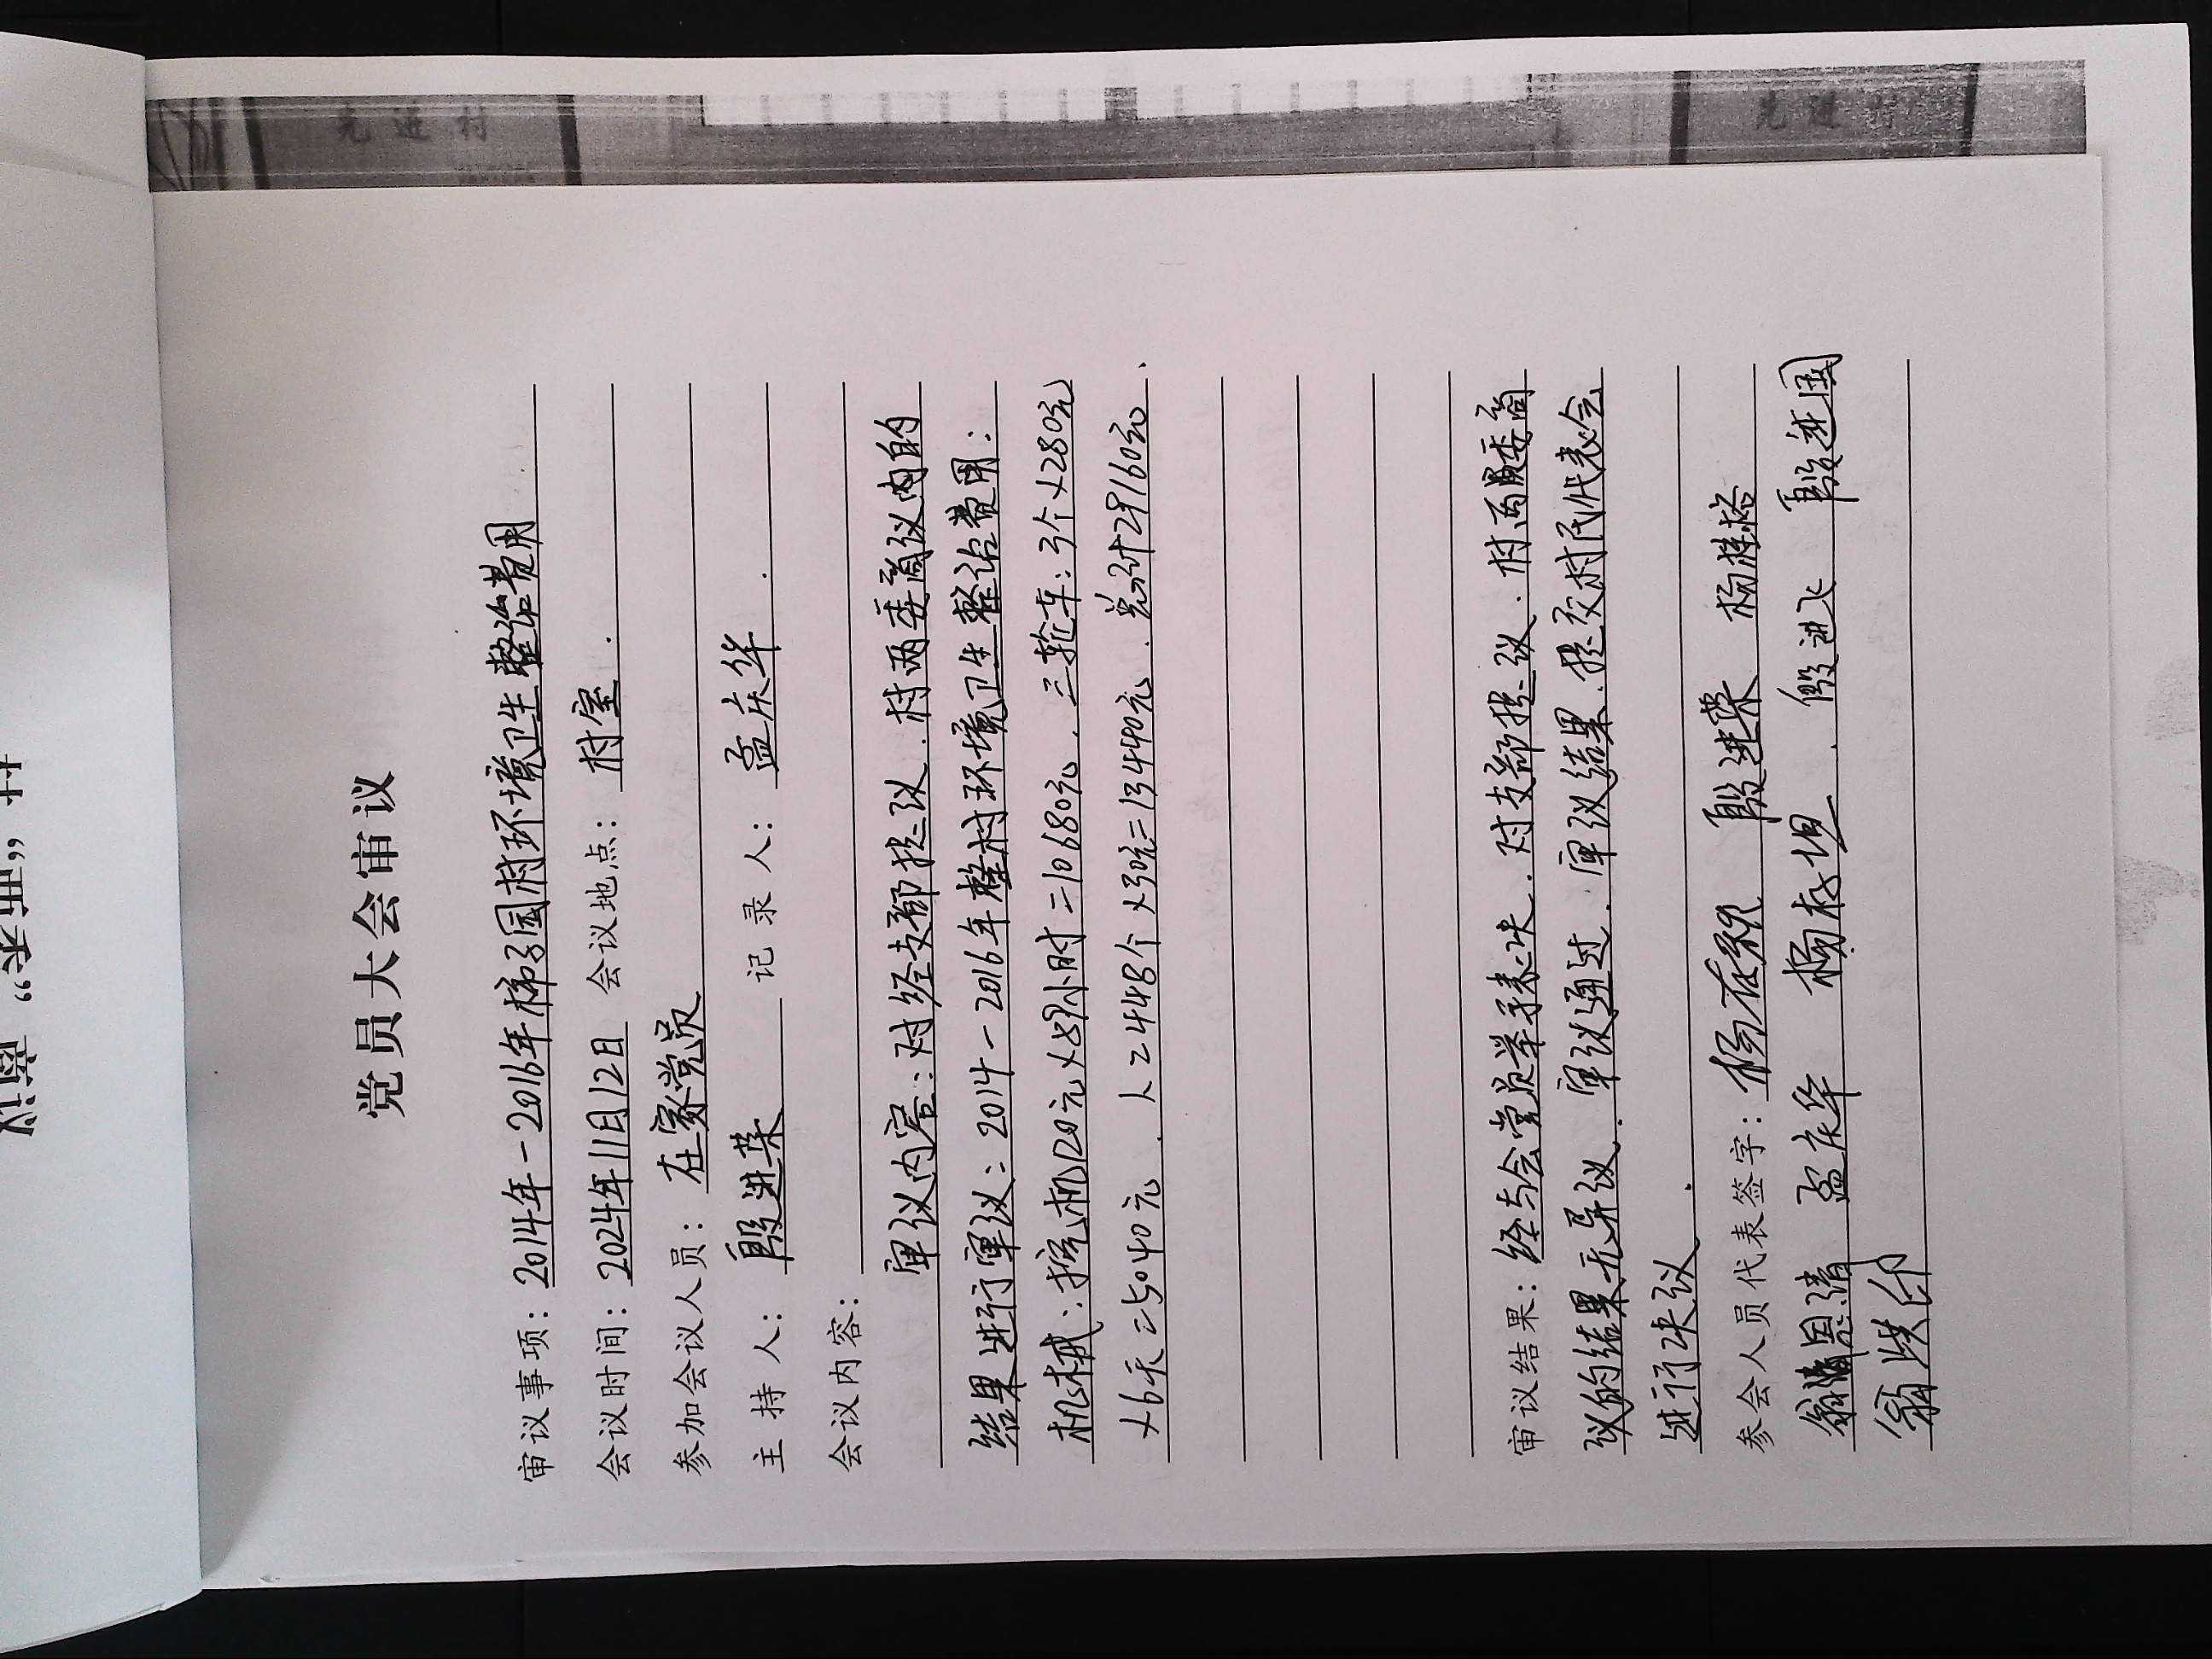 党员大会审议
审议事项：2014年-2016年梯子园村环境卫生整治费用
会议时间：2024年11日12日 会议地点：村室.
参加会议人员：在家党员
主 持 人：殷进荣 记 录 人：孟庆华.
会议内容：
审议内容：对经支部提议.村两委商议内的
结果进行审议：2014-2016年整村环境卫生整治费用：
机械：挖机120元×89小时=10680元.三轮车：3个×280元
×6天=5040元.人工448个×30元=13440元.总计29160元.
审议结果：经与会党员举手表决.对支部提议.村两委商
议的结果无异议.审议通过.审议结果.提交村民代表会
进行决议.
参会人员代表签字： 殷进荣
孟庆华 杨存坦. 殷进飞 殷进国
翁洪印
先进村
先进村